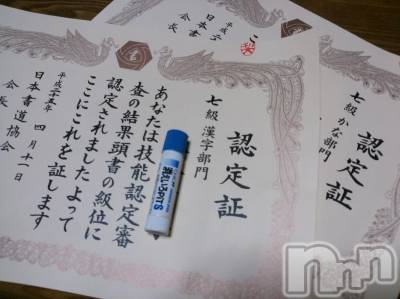 認定証
七級漢字部門
あなたは技能認定審
査の結果頭書の級位に
認定されましたよって
ここにこれを証します
平成二五年 四月十一日
日本書道協会
会長
認定証
七級かな部門
こ
平成二
日本書
会長
nnn